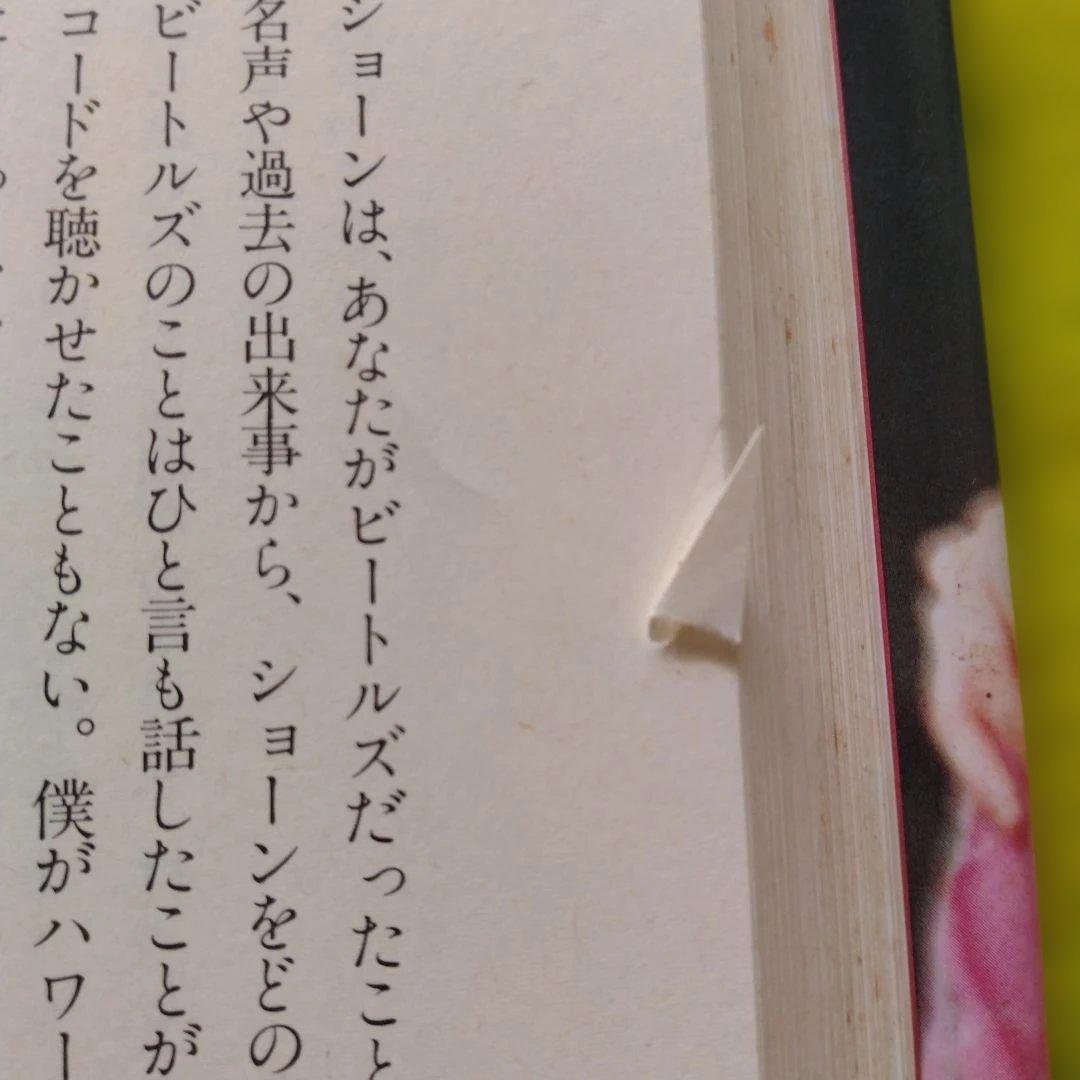 ショーンは、あなたがビートルズだったこと
名声や過去の出来事から、ショーンをどの
ビートルズのことはひと言も話したことが
コードを聴かせたこともない。僕がハワー